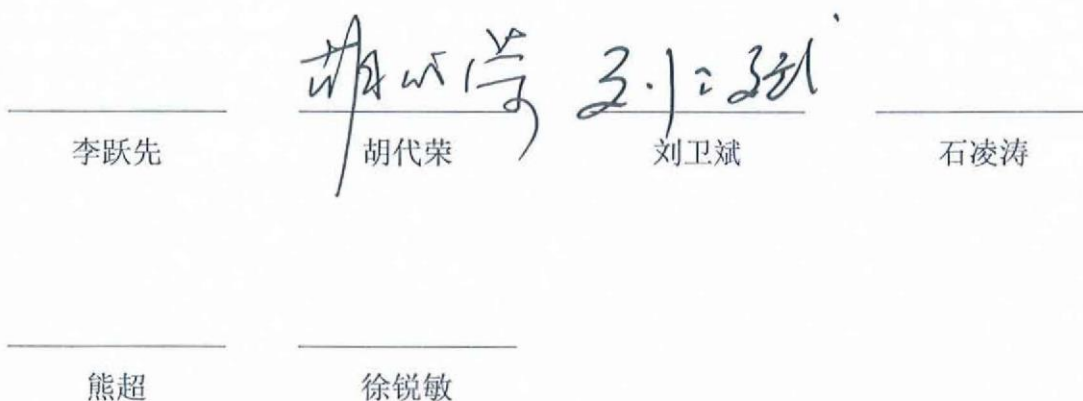 胡代荣 刘卫斌
李跃先 胡代荣 刘卫斌 石凌涛
熊超 徐锐敏